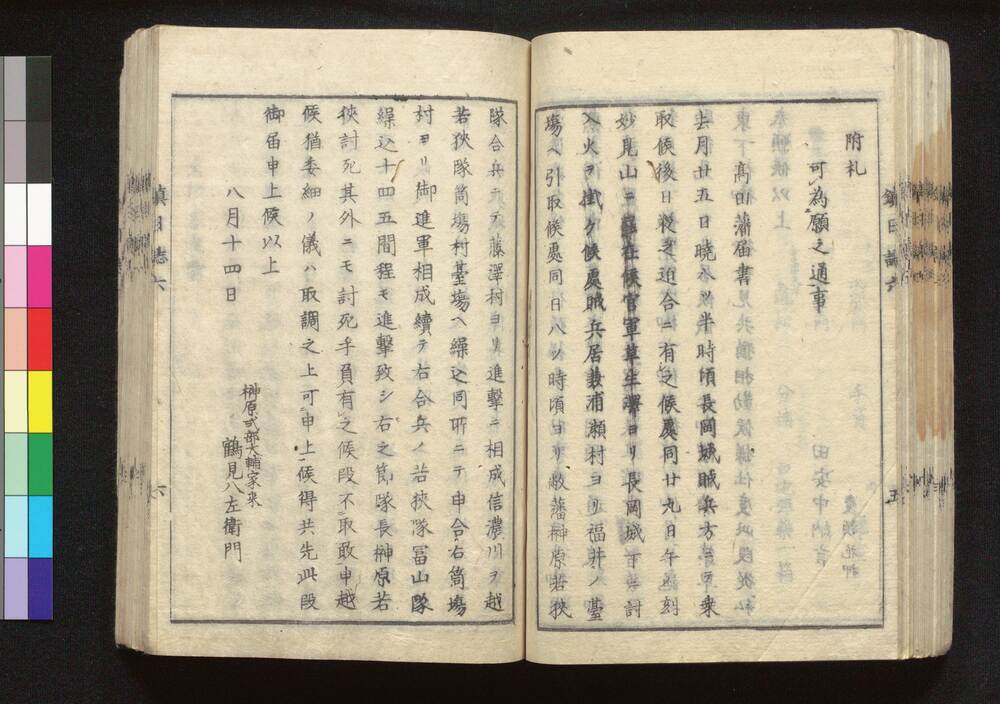 附札
可為願之通事
高田藩届書
去月廿五日暁八ツ半時頃長岡城賊兵方ニテ乗
取候後日投之迫合ニ有之候處同廿九日午過刻
妙見山ニ罷在候官軍草生津ヨリ長岡城下ニ討
入火ヲ掛ケ候處賊兵居敷浦瀬村ヨリ福井ノ臺
塲ヘ引取候處同日八ツ時頃ヨリ敝藩榊原若狹
隊合兵ニテ藤澤村ヨリ進撃ニ相成信濃川ヲ越
若狹隊筒塲村臺塲ヘ繰込同所ニテ申合右筒塲
村ヨリ御進軍相成續テ右合兵ノ若狹隊冨山隊
繰込十四五間程モ進撃致シ右之節隊長榊原若
狹討死其外ニモ討死手負有之候段不取敢申越
候猶委細ノ儀ハ取調之上可申上候得共先此段
御届申上候以上
八月十四日
榊原式部大輔家来
鶴見八左衛門
鎮日誌六
五
鎮日誌六
六